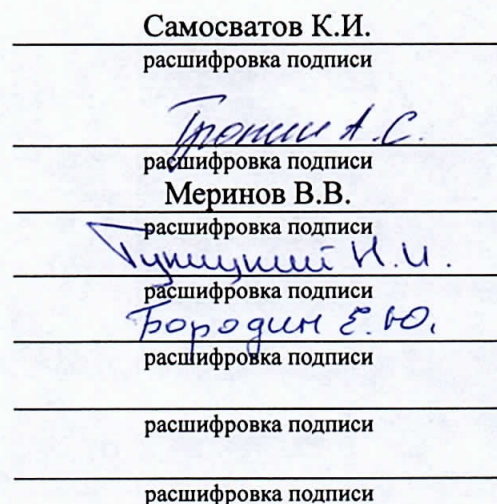 Самосватов К.И.
расшифровка подписи
Тропин А.С.
расшифровка подписи
Меринов В.В.
расшифровка подписи
Н.И.
расшифровка подписи
Бородин Е.Ю.
расшифровка подписи
расшифровка подписи
расшифровка подписи